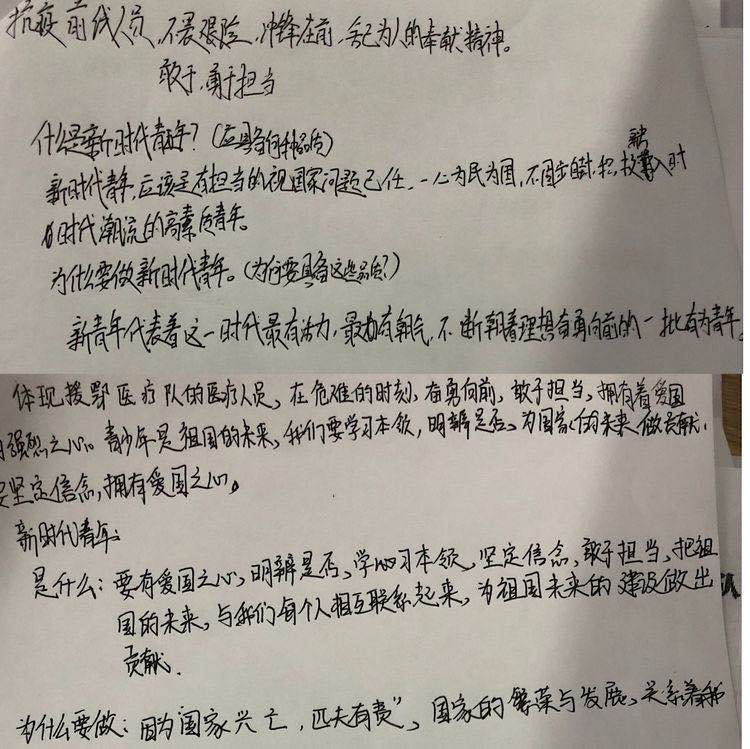 抗疫前线人员,不畏艰险,冲锋在前,舍己为人的奉献精神。
敢于,勇于担当
什么是新时代青年?(应具备何种品质)
新时代青年,应该是有担当的视国家问题已任,一心为民为国,不固步自封,积
时代潮流的高素质青年。
为什么要做新时代青年。(为何要具备这些品质?)
新青年代表着这一时代最有活力,最有朝气,不断朝着理想奋勇向前的一批有为青年。
体现援鄂医疗队的医疗人员,在危难的时刻,奋勇向前,敢于担当,拥有着爱国
强烈之心。青少年是祖国的未来,我们要学习本领,明辨是否。为国家的未来做贡献,
要坚定信念,拥有爱国之心。
新时代青年:
是什么:要有爱国之心,明辨是否,学习本领,坚定信念,敢于担当,把祖
国的未来,与我们每个人相互联系起来,为祖国未来的建设做出
贡献.
为什么要做:因为"国家兴亡,匹夫有责",国家的繁荣与发展,关系着我